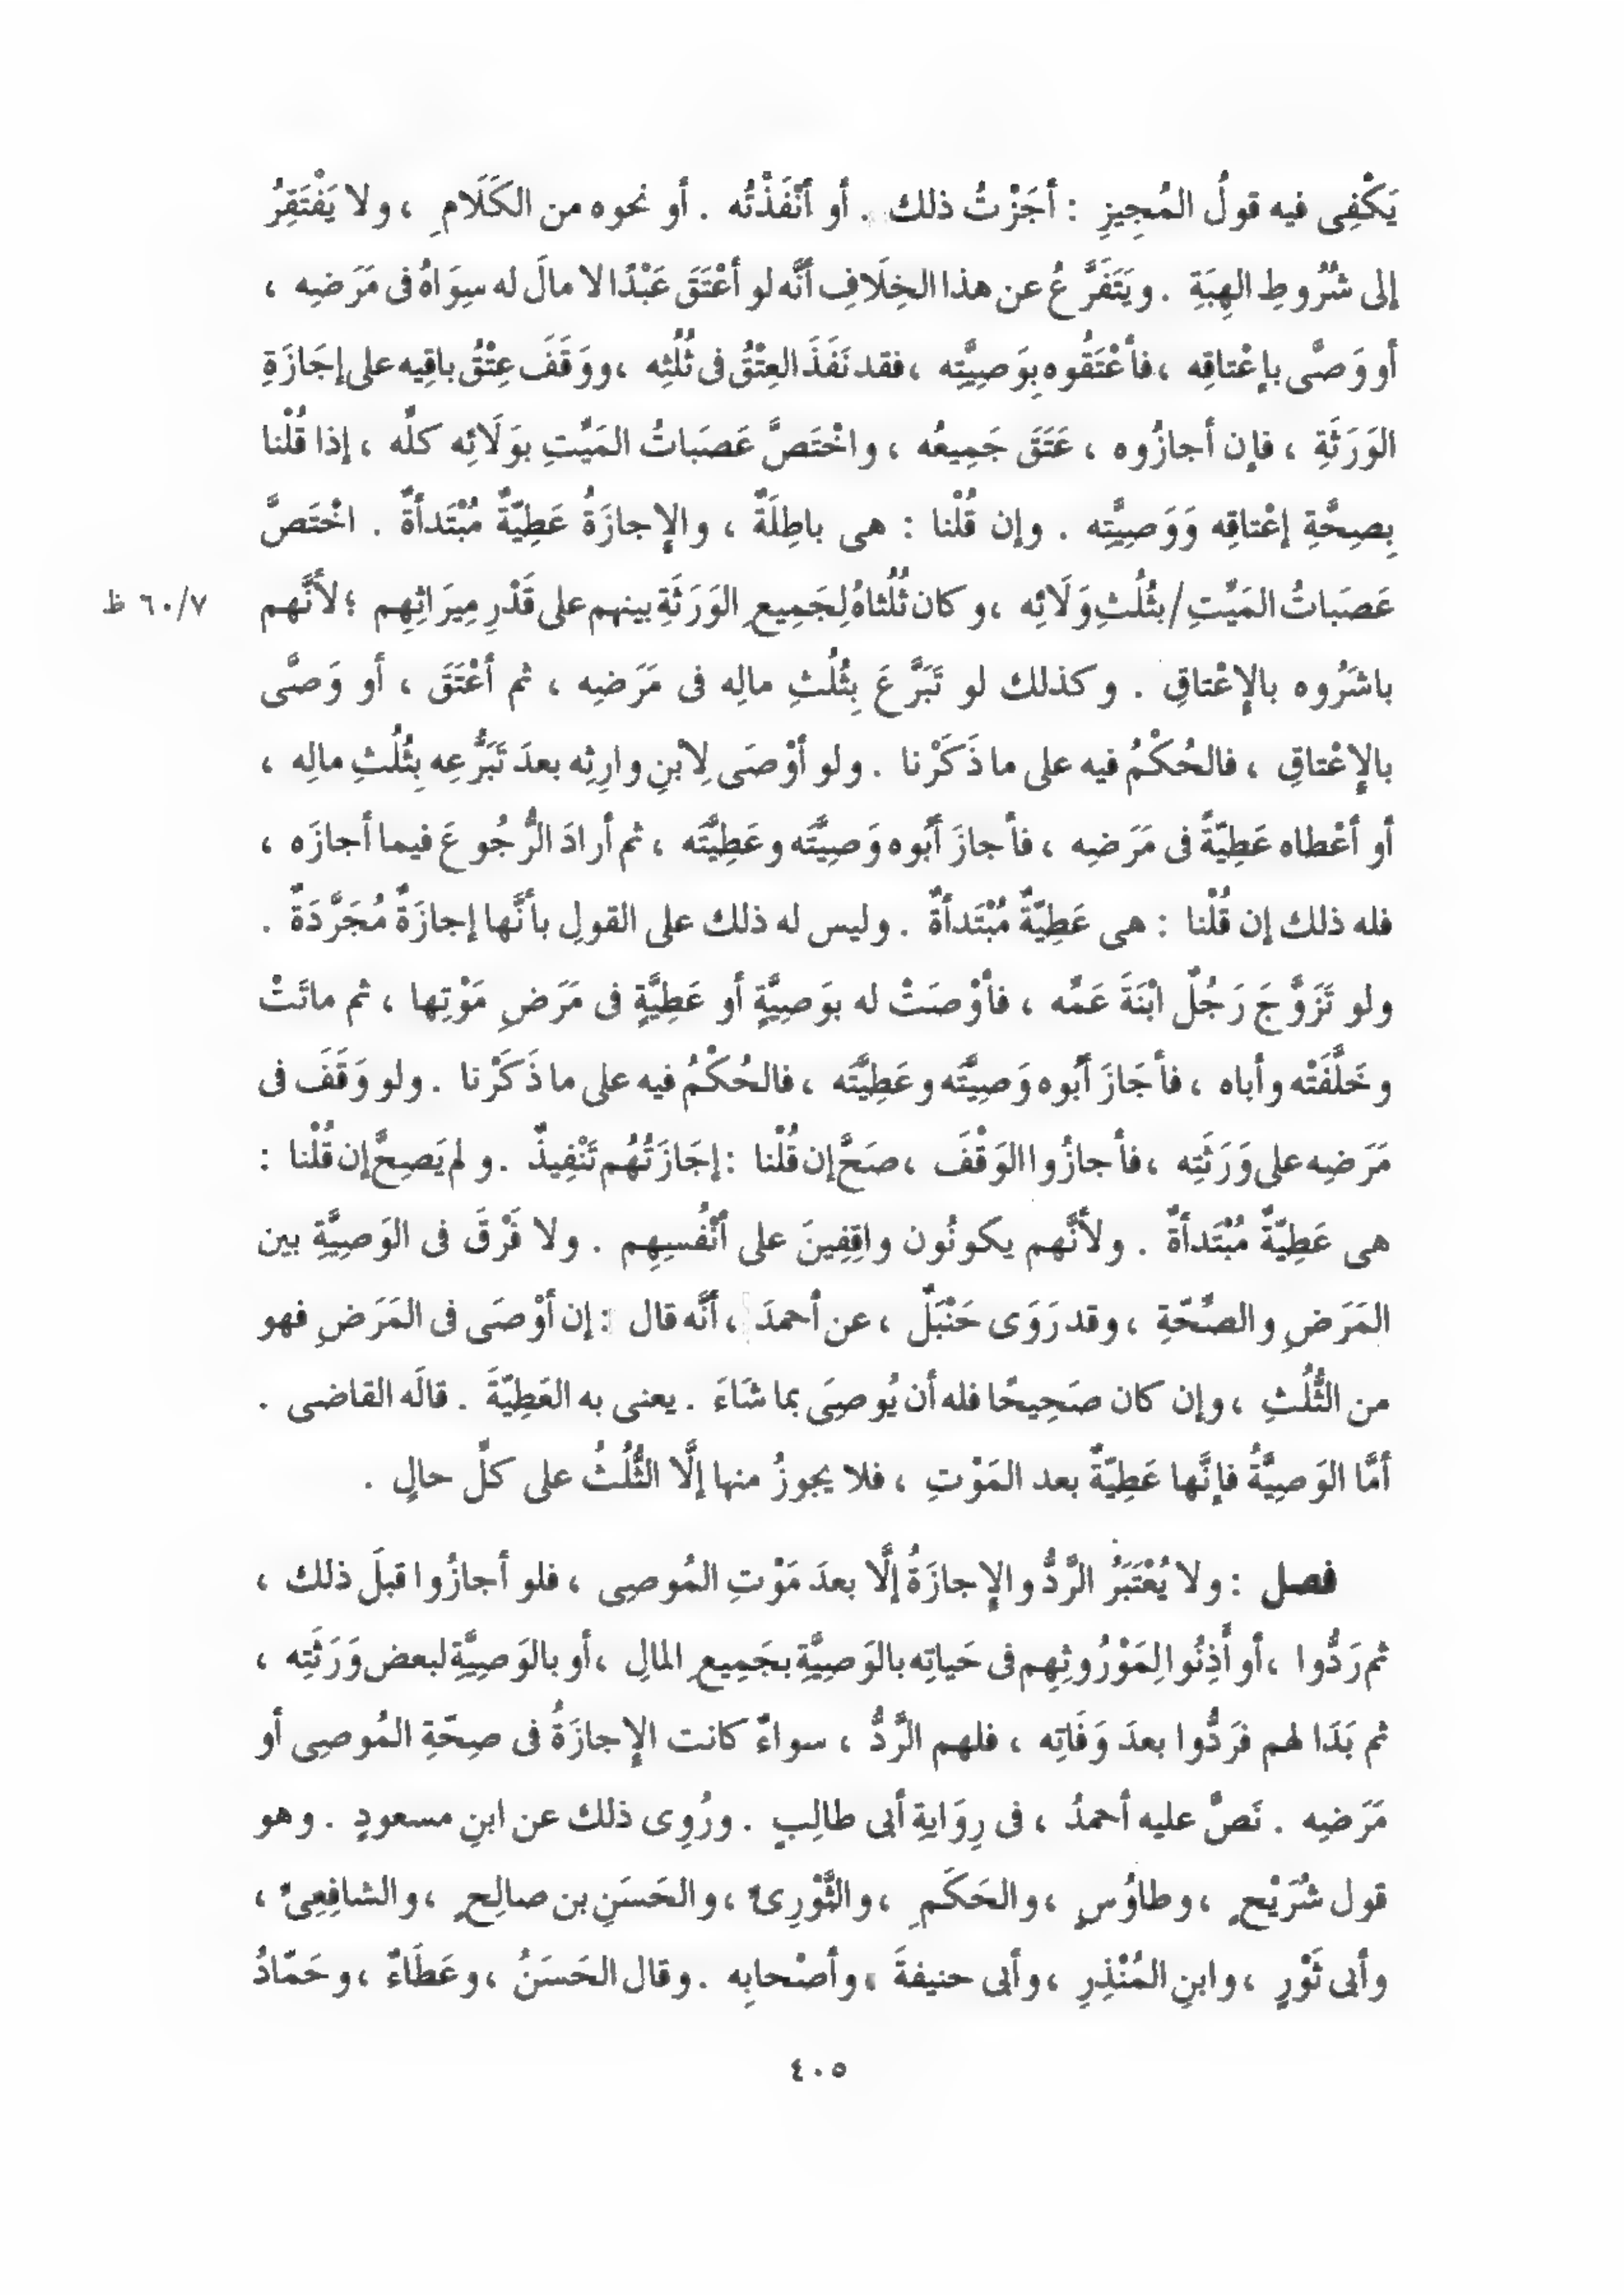 يَكْفِى فيه قولُ المُجِيزِ : أجَزْتُ ذلك . أو أنْفَذْتُه . أو نحوه من الكَلَامِ ، ولا يَفْتَقِرُ
إلى شُرُوطِ الهِبَةِ . ويَتَفَرَّعُ عن هذا الخِلَافِ أنَّه لو أعْتَقَ عَبْدًا لا مالَ له سِوَاهُ فى مَرَضِه ،
أو وَصَّى بإعْتاقِه ، فأعْتَقُوه بِوَصِيَّتِه ، فقد نَفَذَ العِتْقُ فى ثُلُثِه ، ووَقَفَ عِتْقُ باقِيه على إجَازَةِ
الوَرَثَةِ ، فإن أجازُوه ، عَتَقَ جَمِيعُه ، واخْتَصَّ عَصَبَاتُ المَيِّتِ بوَلَائِه كلِّه ، إذا قُلْنا
بِصِحَّةِ إعْتاقِه وَوَصِيَّتِه . وإن قُلْنا : هى باطِلَةٌ ، والإِجازَةُ عَطِيَّةٌ مُبْتَدأةٌ . اخْتَصَّ
عَصَبَاتُ المَيِّتِ / بثُلُثِ وَلَائِه ، وكان ثُلُثاهُ لِجَمِيعِ الوَرَثَةِ بينهم على قَدْرِ مِيرَاثِهِم ؛ لأنَّهم
٦٠/٧ ظ
باشَرُوه بالإِعْتاقِ . وكذلك لو تَبَرَّعَ بِثُلُثِ مالِه فى مَرَضِه ، ثم أعْتَقَ ، أو وَصَّى
بالإِعْتاقِ ، فالحُكْمُ فيه على ما ذَكَرْنا . ولو أوْصَى لِابْنِ وارِثِه بعدَ تَبَرُّعِه بِثُلُثِ مالِه ،
أو أعْطاه عَطِيَّةً فى مَرَضِه ، فأجازَ أبُوه وَصِيَّتَه وعَطِيَّتَه ، ثم أرادَ الرُّجُوعَ فيما أجازَه ،
فله ذلك إن قُلْنا : هى عَطِيَّةٌ مُبْتَدأةٌ . وليس له ذلك على القولِ بأنَّها إجازَةٌ مُجَرَّدَةٌ .
ولو تَزَوَّجَ رَجُلٌ ابْنَةَ عَمِّه ، فأوْصَتْ له بوَصِيَّةٍ أو عَطِيَّةٍ فى مَرَضِ مَوْتِها ، ثم ماتَتْ
وخَلَّفَتْه وأباه ، فأجَازَ أبُوه وَصِيَّتَه وعَطِيَّتَه ، فالحُكْمُ فيه على ما ذَكَرْنا . ولو وَقَفَ فى
مَرَضِه على وَرَثَتِه ، فأجازُوا الوَقْفَ ، صَحَّ إن قُلْنا : إجَازَتُهُم تَنْفِيذٌ . ولم يَصِحَّ إن قُلْنا :
هى عَطِيَّةٌ مُبْتَدأةٌ . ولأنَّهم يكونُون واقِفِينَ على أنْفُسِهِم . ولا فَرْقَ فى الوَصِيَّةِ بين
المَرَضِ والصِّحَّةِ ، وقد رَوَى حَنْبَلٌ ، عن أحمدَ ، أنَّه قال : إن أوْصَى فى المَرَضِ فهو
من الثُّلُثِ ، وإن كان صَحِيحًا فله أن يُوصِىَ بما شَاءَ . يعنى به العَطِيَّةَ . قالَه القاضى .
أمَّا الوَصِيَّةُ فإنَّها عَطِيَّةٌ بعد المَوْتِ ، فلا يجوزُ منها إلَّا الثُّلُثُ على كلِّ حالٍ .
فصل : ولا يُعْتَبَرُ الرَّدُّ والإِجازَةُ إلَّا بعدَ مَوْتِ المُوصِى ، فلو أجازُوا قبلَ ذلك ،
ثم رَدُّوا ، أو أَذِنُوا لِمَوْرُوثِهِم فى حَياتِه بالوَصِيَّةِ بجَمِيعِ المالِ ، أو بالوَصِيَّةِ لبعض وَرَثَتِه ،
ثم بَدَا لهم فرَدُّوا بعدَ وَفَاتِه ، فلهم الرَّدُّ ، سواءٌ كانت الإِجازَةُ فى صِحَّةِ المُوصِى أو
مَرَضِه . نَصَّ عليه أحمدُ ، فى رِوَايةِ أبى طالِبٍ . ورُوِى ذلك عن ابنِ مسعودٍ . وهو
قول شُرَيْحٍ ، وطاوُسٍ ، والحَكَمِ ، والثَّوْرِىِّ ، والحَسَنِ بن صالِحٍ ، والشافِعِىِّ ،
وأبى ثَوْرٍ ، وابنِ المُنْذِرِ ، وأبى حنيفةَ ، وأصْحابِه . وقال الحَسَنُ ، وعَطَاءٌ ، وحَمّادُ
٤٠٥